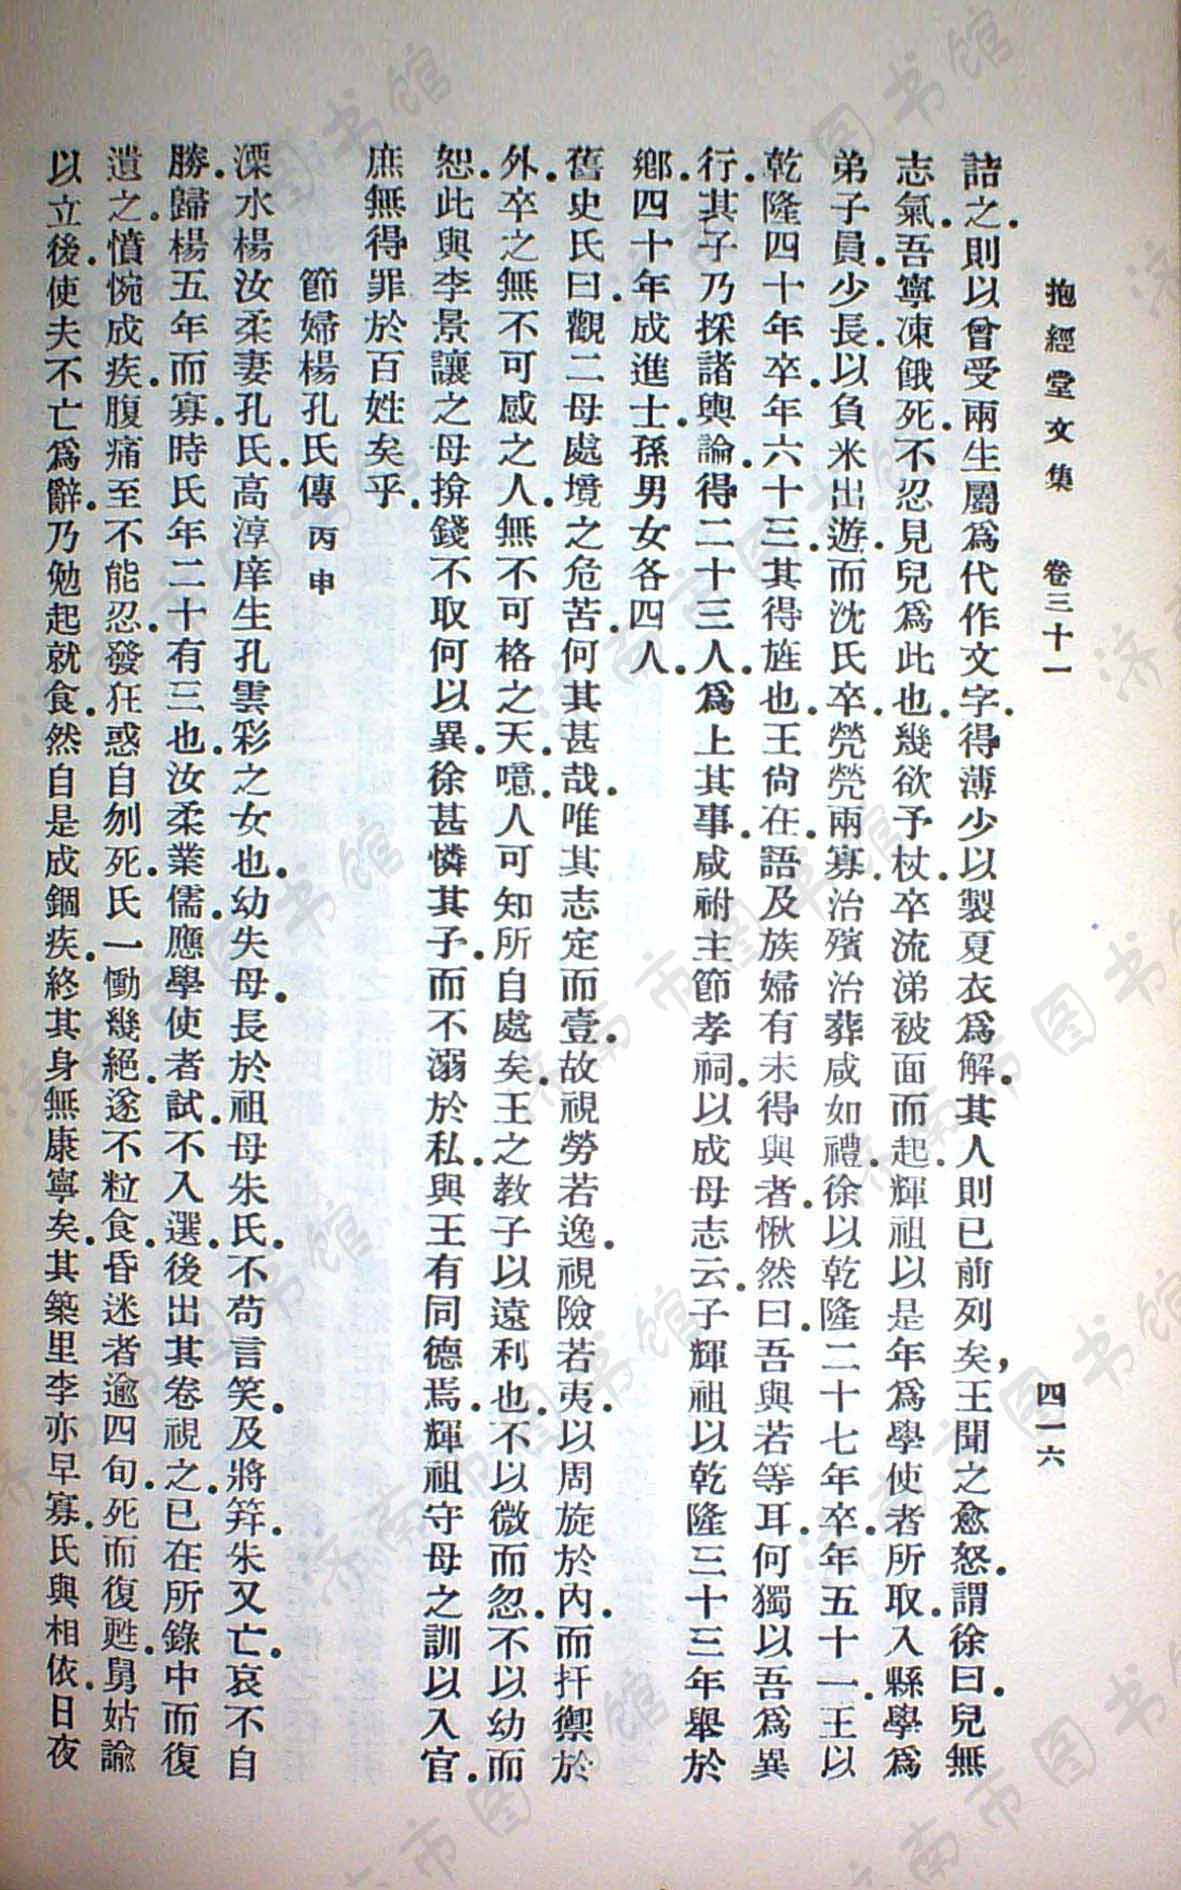 抱經堂文集　卷三十一　四一六
詰之．則以曾受兩生屬爲代作文字．得薄少以製夏衣爲解．其人則已前列矣，王聞之愈怒．謂徐曰．兒無
志氣．吾寧凍餓死．不忍見兒爲此也．幾欲予杖．卒流涕被面而起．輝祖以是年爲學使者所取．入縣學爲
弟子員．少長．以負米出遊．而沈氏卒．煢煢兩寡．治殯治葬咸如禮．徐以乾隆二十七年卒．年五十一．王以
乾隆四十年卒．年六十三．其得旌也．王尙在．語及族婦有未得與者．愀然曰．吾與若等耳．何獨以吾爲異
行．其子乃採諸輿論．得二十三人．爲上其事．咸祔主節孝祠．以成母志云．子輝祖以乾隆三十三年舉於
鄉．四十年成進士．孫男女各四人．
舊史氏曰．觀二母處境之危苦．何其甚哉．唯其志定而壹．故視勞若逸．視險若夷．以周旋於內．而扞禦於
外．卒之無不可感之人．無不可格之天．噫．人可知所自處矣．王之教子以遠利也．不以微而忽．不以幼而
恕．此與李景讓之母揜錢不取何以異．徐甚憐其子．而不溺於私．與王有同德焉．輝祖守母之訓以入官．
庶無得罪於百姓矣乎．
節婦楊孔氏傳 丙申
溧水楊汝柔妻孔氏．高淳庠生孔雲彩之女也．幼失母．長於祖母朱氏．不苟言笑．及將筓．朱又亡．哀不自
勝．歸楊五年而寡．時氏年二十有三也．汝柔業儒．應學使者試．不入選．後出其卷視之．已在所錄中而復
遺之．憤惋成疾．腹痛至不能忍．發狂惑自刎死．氏一慟幾絕．遂不粒食．昏迷者逾四旬．死而復甦．舅姑諭
以立後．使夫不亡爲辭．乃勉起就食．然自是成錮疾．終其身無康寧矣．其築里李亦早寡．氏與相依．日夜